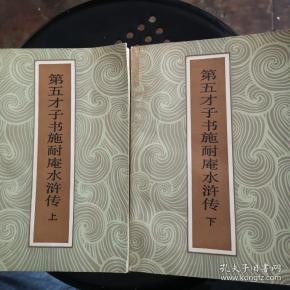 第五才子书施耐庵水浒传 上
第五才子书施耐庵水浒传 下
孔夫子旧书网